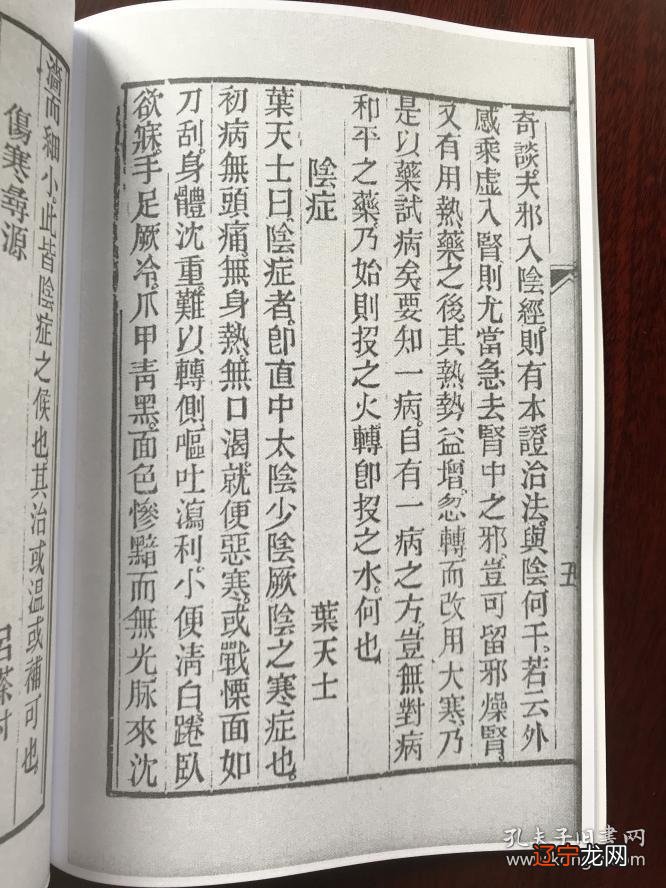 奇談夫邪入陰經則有本證治法與陰何干若云外
感乘虛入腎則尤當急去腎中之邪豈可留邪燥腎
又有用熱藥之後其熱勢益增忽轉而改用大寒乃
是以藥試病矣要知一病自有一病之方豈無對病
和平之藥乃始則投之火轉卽投之水何也
陰症
葉天士
葉天士曰陰症者卽直中太陰少陰厥陰之寒症也
初病無頭痛無身熱無口渴就便惡寒或戰慄面如
刀刮身體沈重難以轉側嘔吐瀉利小便淸白踡臥
欲寐手足厥冷爪甲靑黑面色慘黯而無光脈來沈
五
濇而細小此皆陰症之候也其治或温或補可也
傷寒尋源
呂茶村
孔夫子旧書网
辽宁龙网